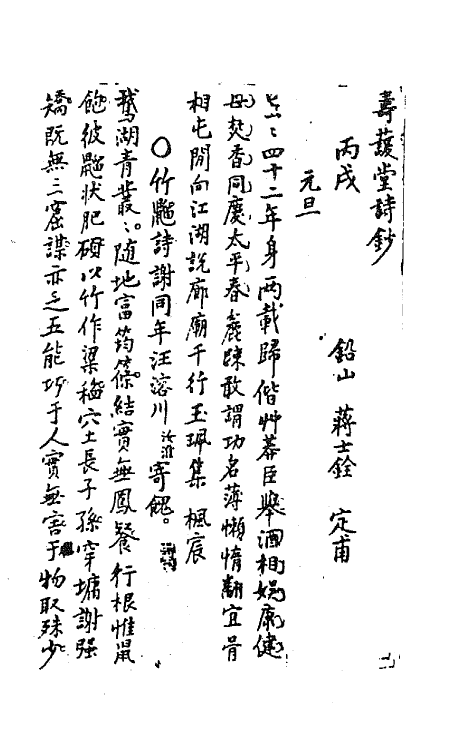 壽萲堂詩鈔
丙戌
鉛山 蔣士銓 定甫
元旦
四十二年身兩載歸偕艸莽臣舉酒相娛康健
母焚香同慶太平春麄疎敢謂功名薄懶惰翻宜骨
相屯閒向江湖說廊廟千行玉珮集楓宸
○竹䶉詩謝同年汪溶川汝淮寄餽。
鵞湖青叢〻隨地富筠篠結實無鳳餐行根惟鼠
飽彼䶉狀肥碩以竹作粱稻穴土長子孫穿墉謝强
矯既無三窟謀亦乏五能巧于人實無害于物取殊少